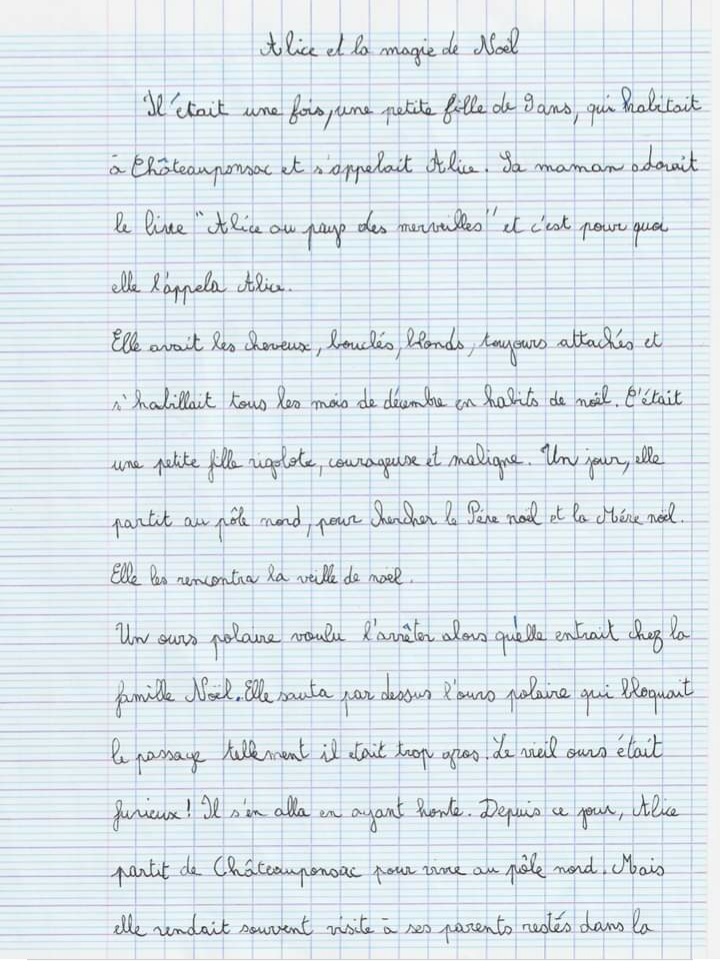 Alice et la magie de Noël
Il était une fois, une petite fille de 9 ans, qui habitait
à Châteauponsac et s'appelait Alice. Sa maman adorait
le livre "Alice au pays des merveilles" et c'est pour quoi
elle l'appela Alice.
Elle avait les cheveux, bouclés, blonds, toujours attachés et
s'habillait tous les mois de décembre en habits de noël. C'était
une petite fille rigolote, courageuse et maligne. Un jour, elle
partit au pôle nord, pour chercher le Père noël et la Mére noël.
Elle les rencontra la veille de noël.
Un ours polaire voulu l'arrêter alors qu'elle entrait chez la
famille Noël. Elle sauta par dessus l'ours polaire qui bloquait
le passage tellement il était trop gros. Le vieil ours était
furieux! Il s'en alla en ayant honte. Depuis ce jour, Alice
partit de Châteauponsac pour vivre au pôle nord. Mais
elle rendait souvent visite à ses parents restés dans la